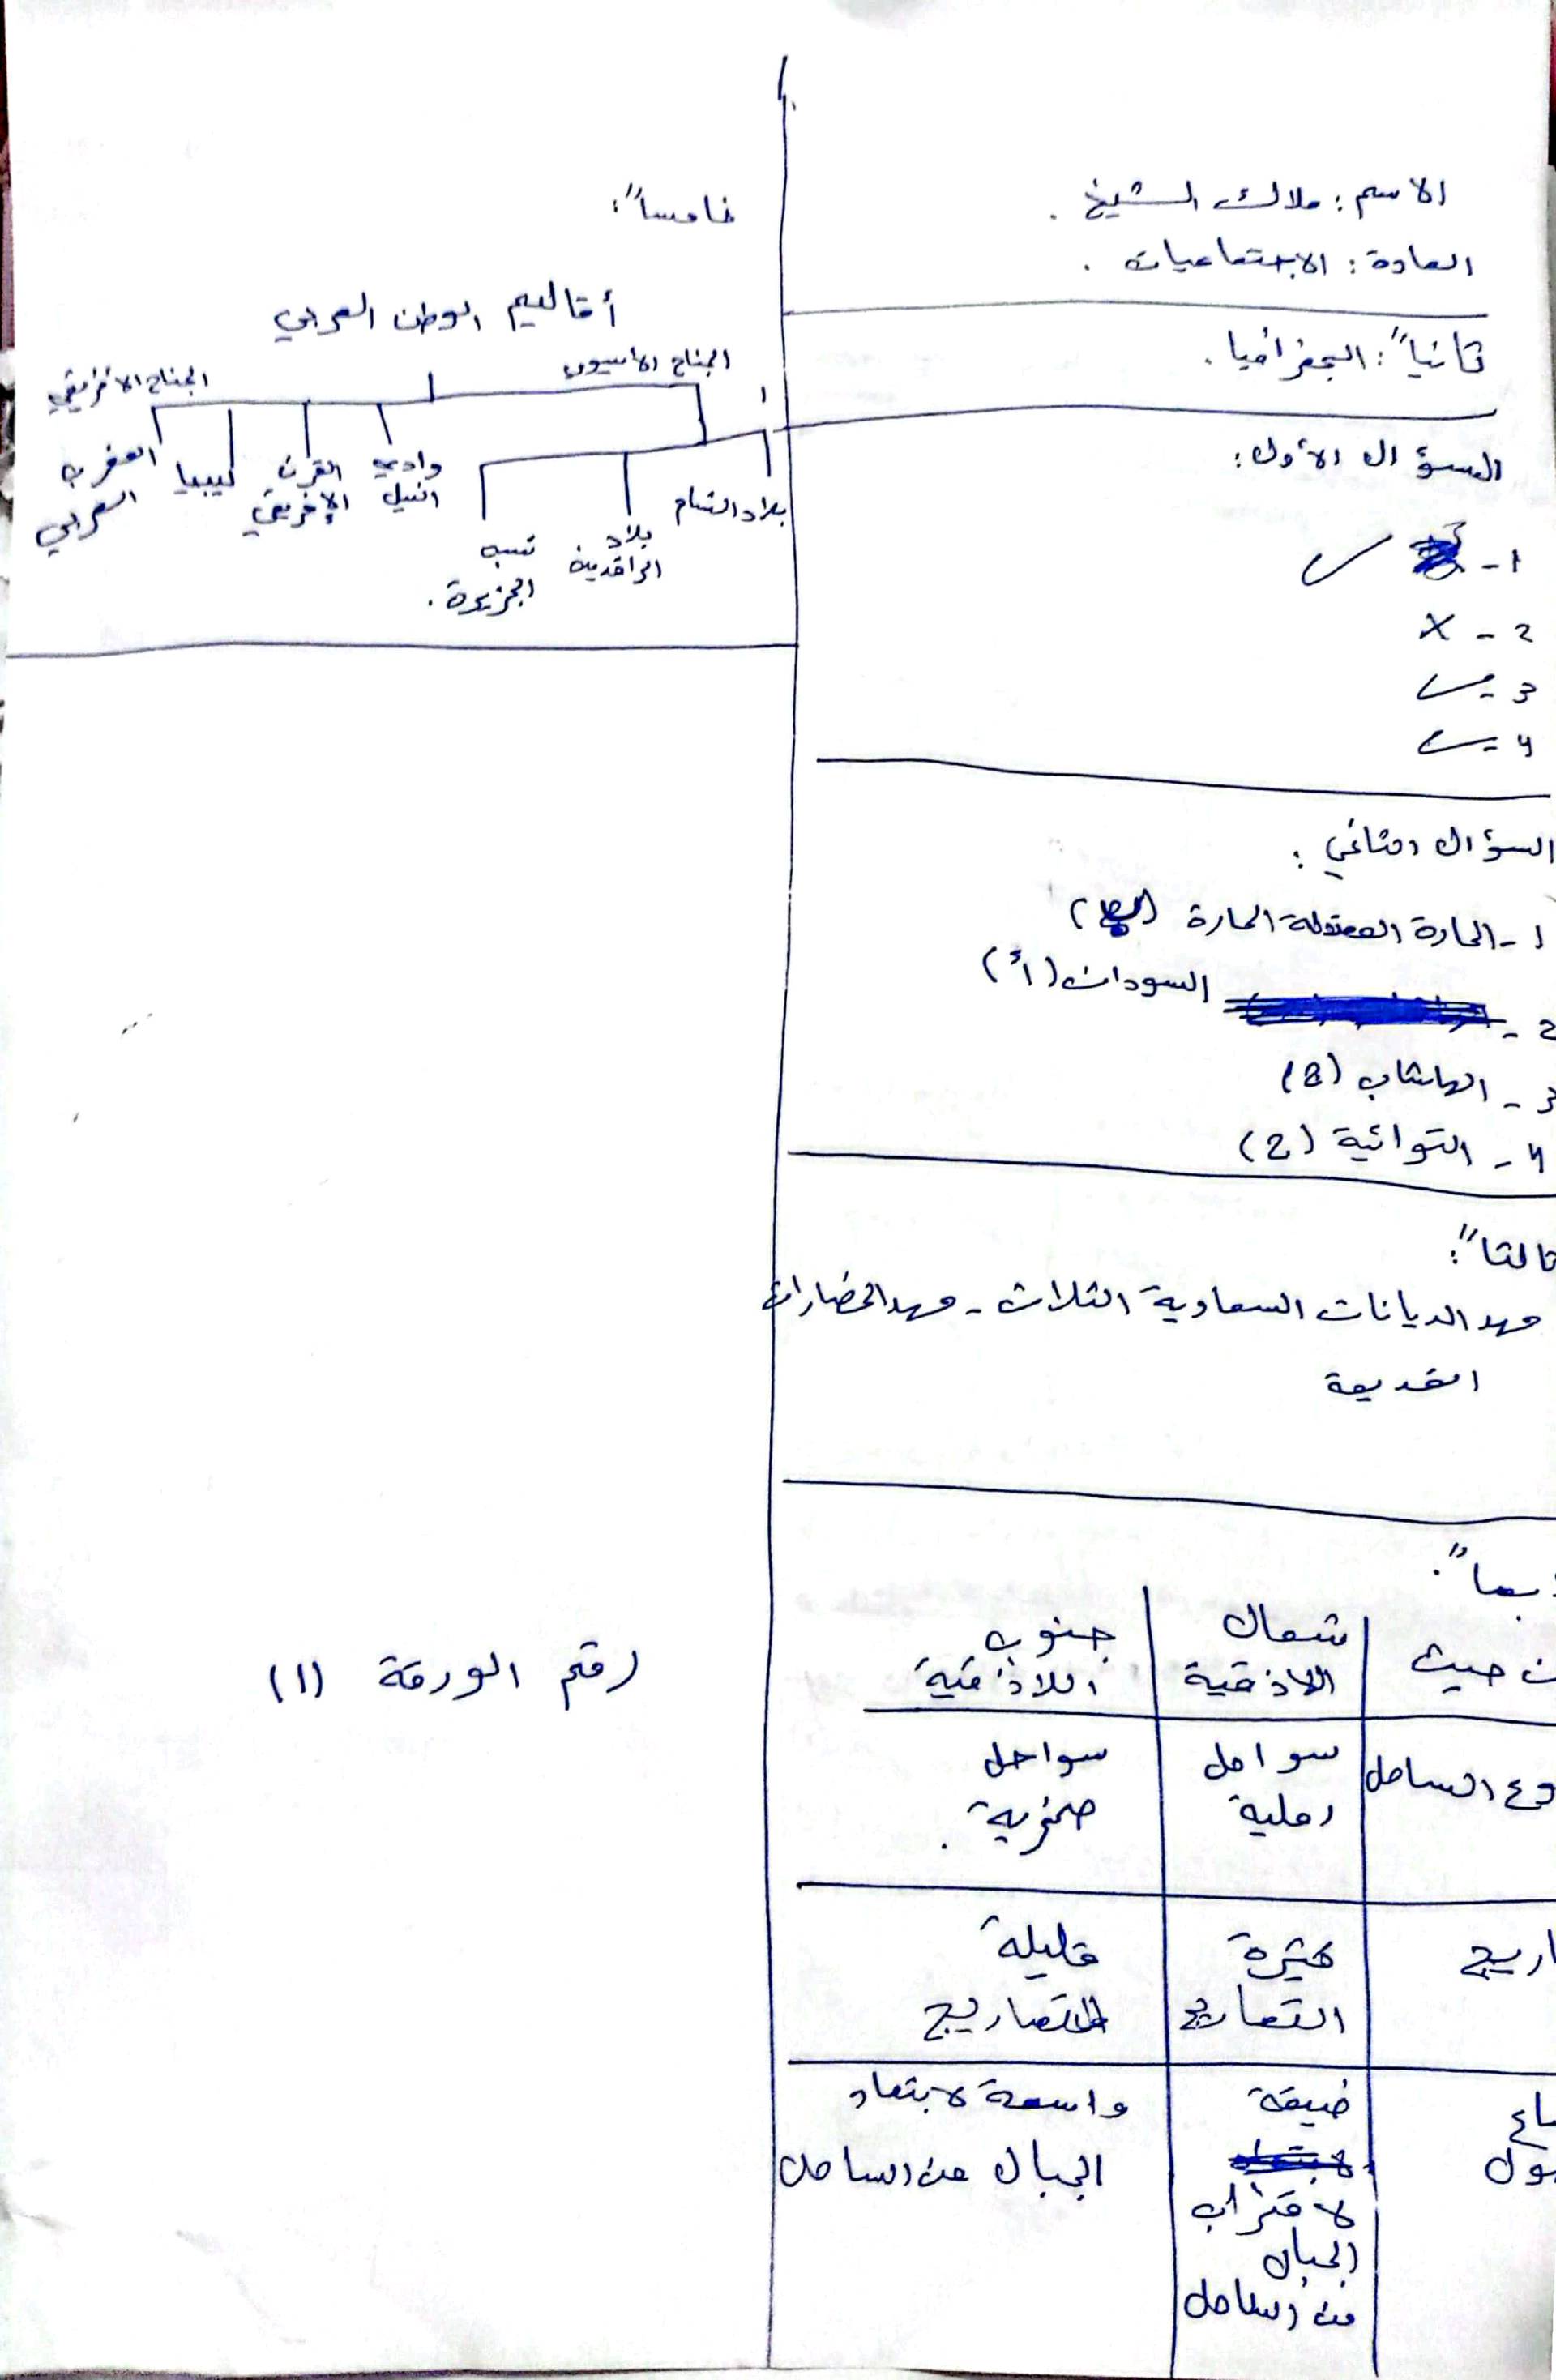 الاسم : ملاك الشيخ .
المادة : الاجتماعيات .
ثانياً : الجغرافيا .
السؤال الأول :
1 - ✓
2 - X
3 - ✓
4 - ✓
السؤال الثاني :
1 - الحارة المعتدلة الحارة
2 - السودان (أ)
3 - الهاشاب (8)
4 - التوائية (2)
ثالثا" :
مهد الديانات السماوية الثلاث - مهد الحضارات
القديمة
بعا" :
ن حيث | شمال اللاذقية | جنوب اللاذقية
وع الساحل | سواحل رملية | سواحل صخرية .
اريج | كثيرة التعاريج | قليلة التعاريج
ساع
ول | ضيقة لاقتراب الجبال من الساحل | واسعة لابتعاد الجبال عن الساحل
خامسا" :
أقاليم الوطن العربي
الجناح الاسيوي
الجناح الافريقي
بلاد الشام
بلاد الرافدين
شبه الجزيرة .
وادي النيل
القرن الإفريقي
ليبيا
المغرب العربي
رقم الورقة (1)